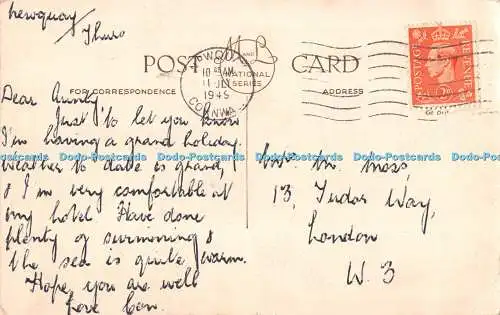 Newquay
Thurs
POST CARD
M & L
NATIONAL
SERIES
FOR CORRESPONDENCE
ADDRESS
NEWQUAY
10 45 AM
11 JLY
1945
CORNWALL
POSTAGE REVENUE
Dear Aunty
Just to let you know
I'm having a grand holiday.
Weather to date is grand,
& I'm very comfortable at
my hotel Have done
plenty of swimming &
the sea is quite warm.
Hope you are well
Love Con.
Moss,
13, Tudor Way,
London
W. 3
Dodo-Postcards Dodo-Postcards Dodo-Postcards Dodo-Postcards Dodo-Postcards